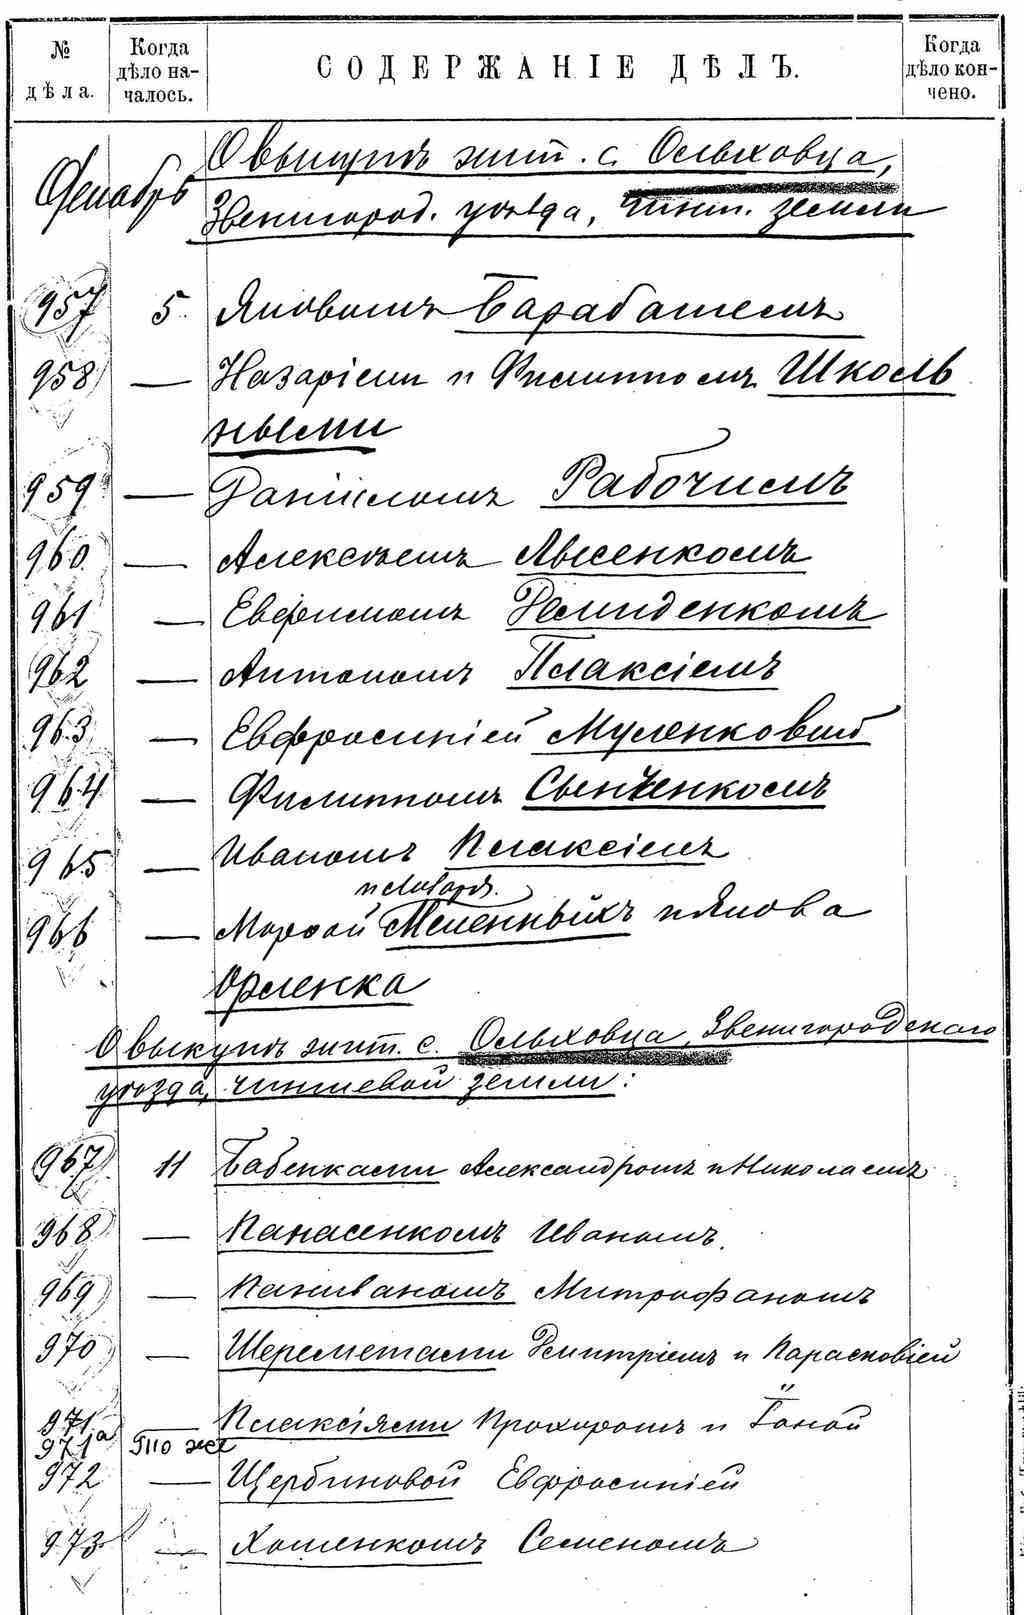 №
дѣла.
Когда
дѣло на-
чалось.
СОДЕРЖАНІЕ ДѢЛЪ.
Когда
дѣло кон-
чено.
Декабрь
О выкупѣ жит. с. Ольховца,
Звенигород. уѣзда, чинш. земли
957 5. Яковомъ Барабашемъ
958 — Назаріемъ и Филиппомъ Школь
ными
959 — Даніиломъ Рабочимъ
960 — Алексѣемъ Лысенкомъ
961 — Евфимомъ Демиденкомъ
962 — Антономъ Плаксіемъ
963 — Евфросиніей Муленковой
964 — Филиппомъ Свенченкомъ
965 — Иваномъ Плаксіемъ
966 — Марфой и Якова
Орленка
О выкупѣ жит. с. Ольховца, Звенигородскаго
уѣзда, чиншевой земли:
967 11 Бабенками Александромъ и Николаемъ
968 — Панасенкомъ Иваномъ.
969 — Паливаномъ Митрофаномъ
970 — Шереметами Дмитріемъ и Парасковіей
971 — Плаксіями Прохоромъ и Ганой
971а тоже
972 — Щербиновой Евфросиніей
973 — Хоменкомъ Семеномъ